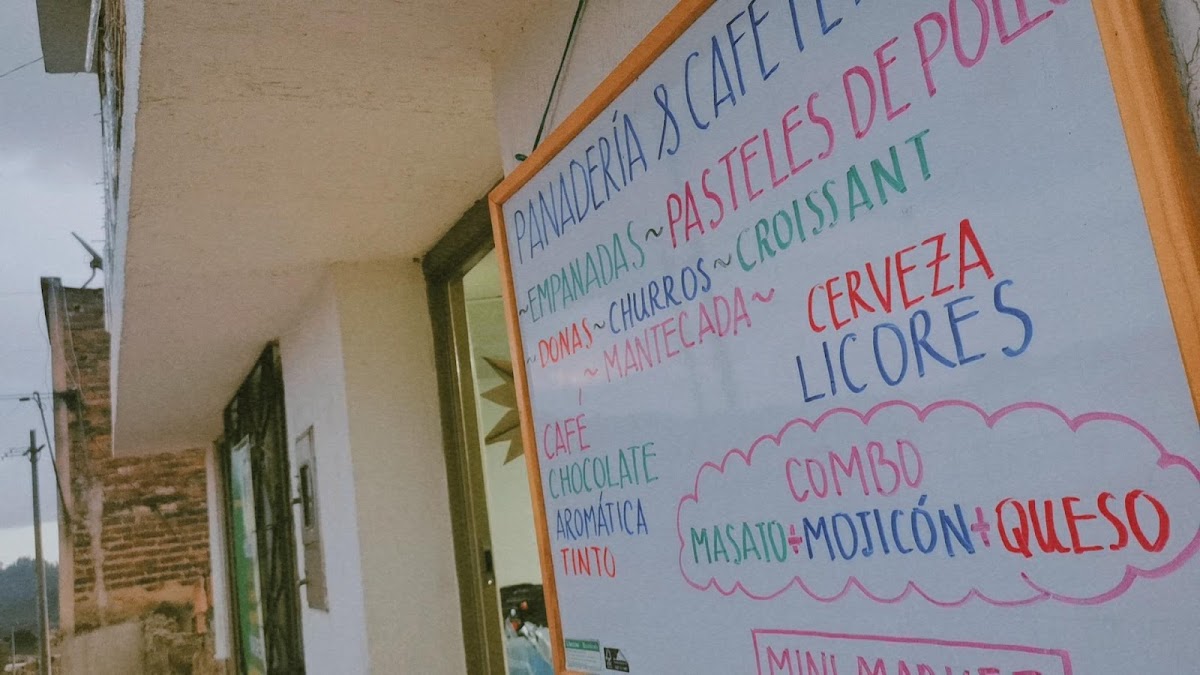 PANADERÍA & CAFETE
~EMPANADAS~PASTELES DE POLLO
~DONAS~CHURROS~CROISSANT
~MANTECADA~
CERVEZA
LICORES
CAFÉ
CHOCOLATE
AROMÁTICA
TINTO
COMBO
MASATO+MOJICÓN+QUESO
MINI MARKET